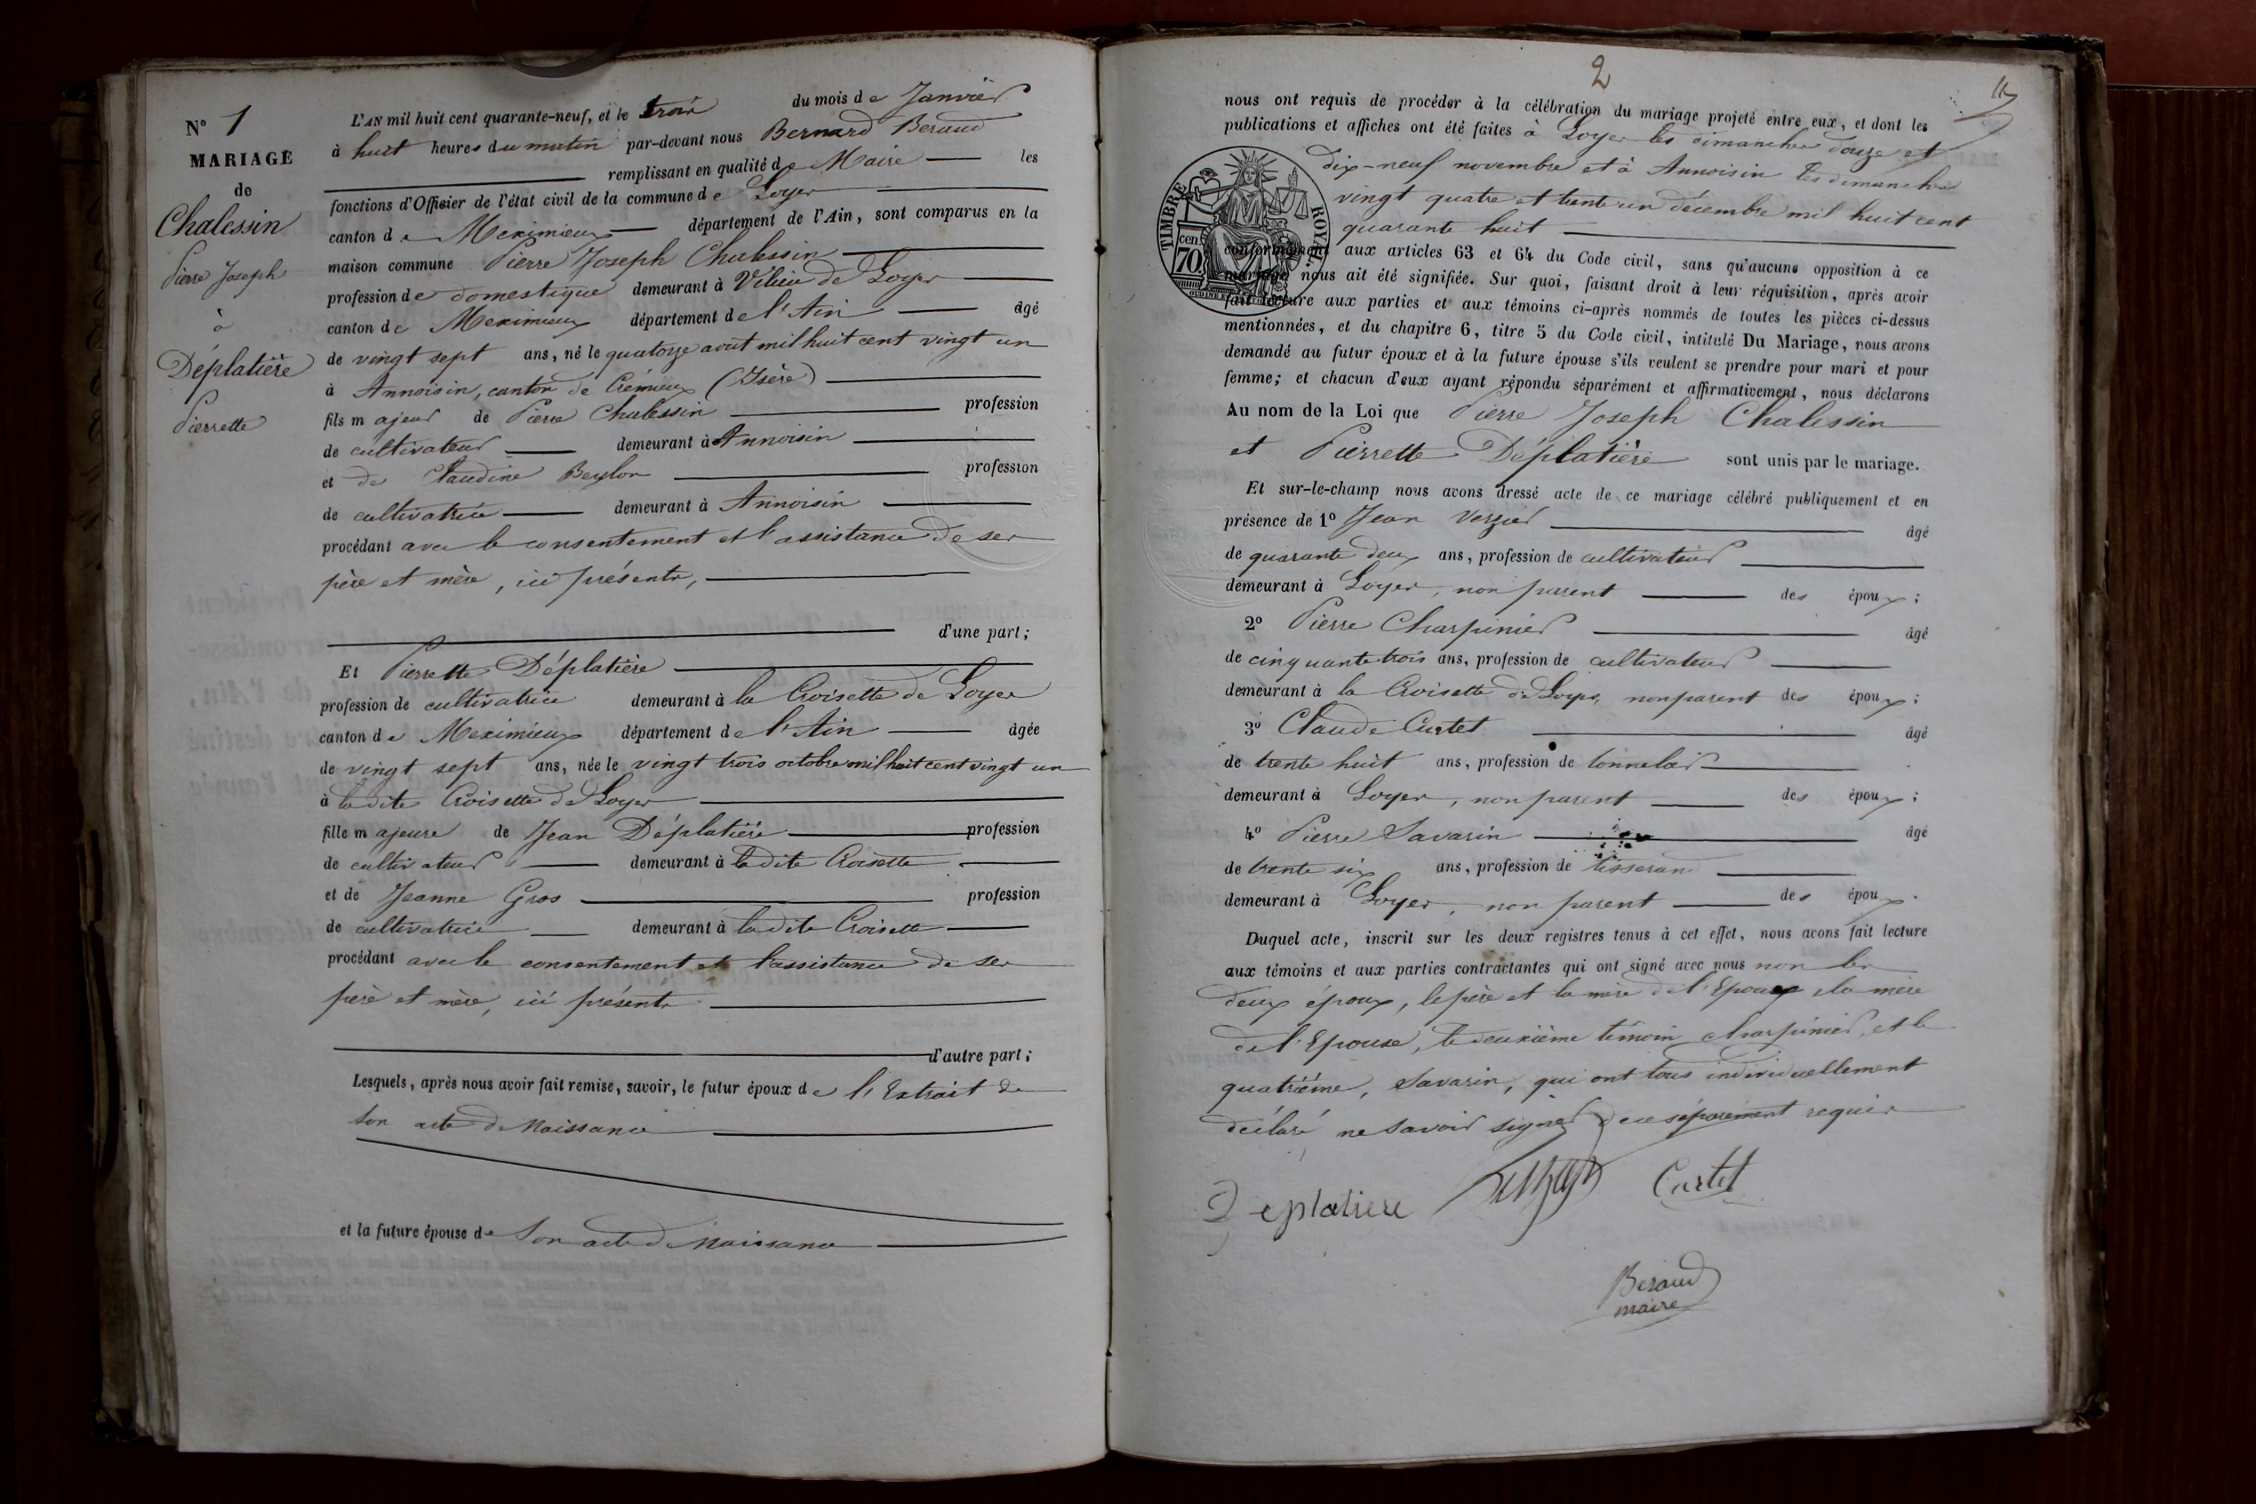 N° 1
MARIAGE
de
Chalessin
Pierre Joseph
à
Déplatière
Pierrette
L'AN mil huit cent quarante-neuf, et le trois du mois de Janvier
à huit heures du matin par-devant nous Bernard Beraud
remplissant en qualité de Maire les
fonctions d'Officier de l'état civil de la commune de Loyes
canton de Meximieux département de l'Ain, sont comparus en la
maison commune Pierre Joseph Chalessin
profession de domestique demeurant à Vilieu de Loyes
canton de Meximieux département de l'Ain âgé
de vingt sept ans, né le quatorze août mil huit cent vingt un
à Annoisin, canton de Crémieux (Isère)
fils majeur de Pierre Chalessin profession
de cultivateur demeurant à Annoisin
et de Claudine profession
de cultivatrice demeurant à Annoisin
procédant avec le consentement et l'assistance de ses
père et mère, ici présents,
d'une part;
Et Pierrette Déplatière
profession de cultivatrice demeurant à la Croisette de Loyes
canton de Meximieux département de l'Ain âgée
de vingt sept ans, née le vingt trois octobre mil huit cent vingt un
à ladite Croisette de Loyes
fille majeure de Jean Déplatière profession
de cultivateur demeurant à ladite Croisette
et de Jeanne Gros profession
de cultivatrice demeurant à ladite Croisette
procédant avec le consentement et l'assistance de ses
père et mère, ici présents
d'autre part;
Lesquels, après nous avoir fait remise, savoir, le futur époux de l'Extrait de
son acte de Naissance
et la future épouse de Son acte de Naissance
2
nous ont requis de procéder à la célébration du mariage projeté entre eux, et dont les
publications et affiches ont été faites à Loyes les dimanches douze et
dix-neuf novembre et à Annoisin les dimanches
vingt quatre et trente un décembre mil huit cent
quarante huit
TIMBRE ROYAL
70 cen.
conformément aux articles 63 et 64 du Code civil, sans qu'aucune opposition à ce
mariage nous ait été signifiée. Sur quoi, faisant droit à leur réquisition, après avoir
fait lecture aux parties et aux témoins ci-après nommés de toutes les pièces ci-dessus
mentionnées, et du chapitre 6, titre 5 du Code civil, intitulé Du Mariage, nous avons
demandé au futur époux et à la future épouse s'ils veulent se prendre pour mari et pour
femme; et chacun d'eux ayant répondu séparément et affirmativement, nous déclarons
Au nom de la Loi que Pierre Joseph Chalessin
et Pierrette Déplatière sont unis par le mariage.
Et sur-le-champ nous avons dressé acte de ce mariage célébré publiquement et en
présence de 1° Jean Verzier âgé
de quarante deux ans, profession de cultivateur
demeurant à Loyes, non parent des époux;
2° Pierre Charpinier âgé
de cinquante trois ans, profession de cultivateur
demeurant à la Croisette de Loyes, non parent des époux;
3° Claude Curtet âgé
de trente huit ans, profession de tonnelier
demeurant à Loyes, non parent des époux;
4° Pierre Savarin âgé
de trente six ans, profession de tisserand
demeurant à Loyes, non parent des époux.
Duquel acte, inscrit sur les deux registres tenus à cet effet, nous avons fait lecture
aux témoins et aux parties contractantes qui ont signé avec nous non les
deux époux, le père et la mère de l'Epoux, la mère
de l'Epouse, le deuxième témoin Charpinier, et le
quatrième, Savarin, qui ont tous individuellement
déclaré ne savoir signer de ce séparément requis
Deplatiere Curtet
Beraud
maire